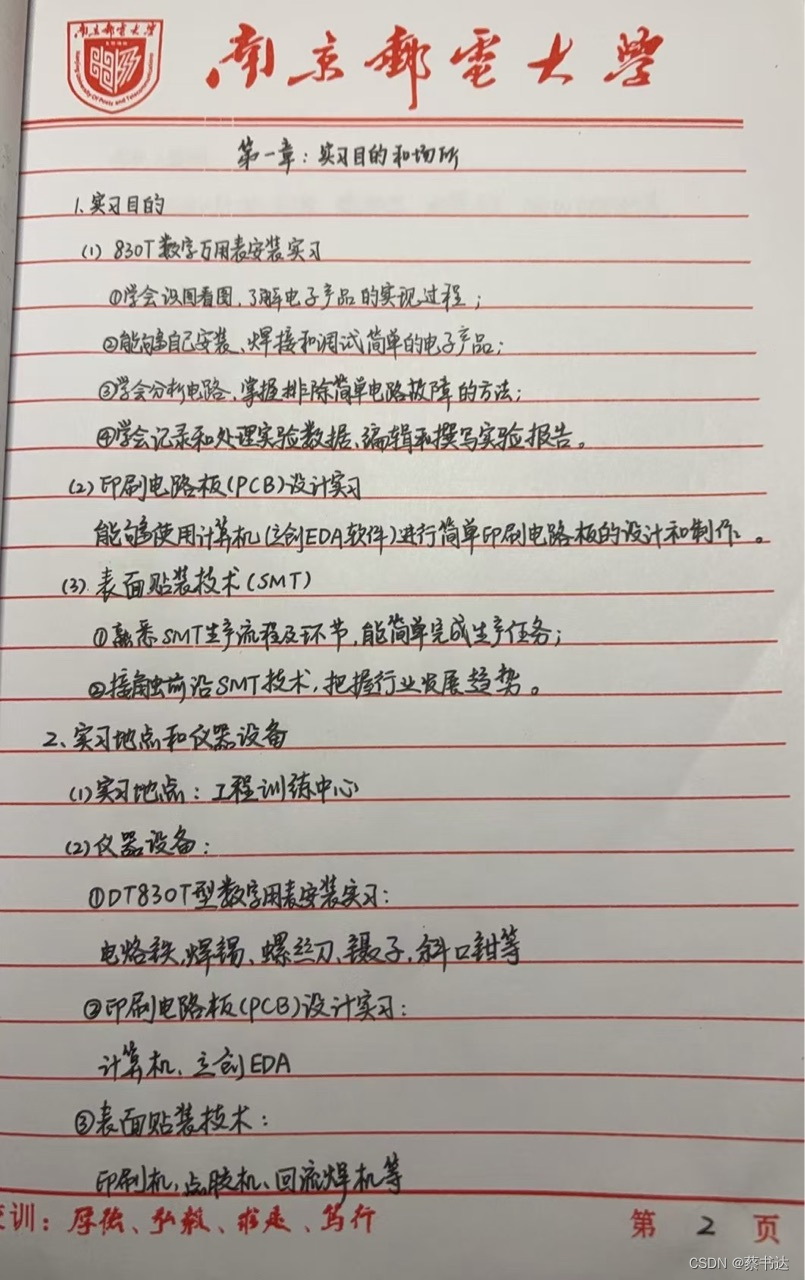 南京邮电大学
Nanjing University Of Posts and Telecommunications
南京郵電大學
第一章：实习目的和场所
1.实习目的
(1) 830T数字万用表安装实习
①学会识图看图，了解电子产品的实现过程；
②能够自己安装、焊接和调试简单的电子产品；
③学会分析电路，掌握排除简单电路故障的方法；
④学会记录和处理实验数据、编辑和撰写实验报告。
(2) 印刷电路板(PCB)设计实习
能够使用计算机(立创EDA软件)进行简单印刷电路板的设计和制作。
(3). 表面贴装技术(SMT)
①熟悉SMT生产流程及环节，能简单完成生产任务；
②接触前沿SMT技术，把握行业发展趋势。
2、实习地点和仪器设备
(1)实习地点：工程训练中心
(2)仪器设备：
①DT830T型数字用表安装实习：
电烙铁，焊锡、螺丝刀、镊子，斜口钳等
②印刷电路板(PCB)设计实习：
计算机、立创EDA
③表面贴装技术：
印刷机，点胶机、回流焊机等
校训：厚德、弘毅、求是、笃行
第 2 页
CSDN @蔡书达